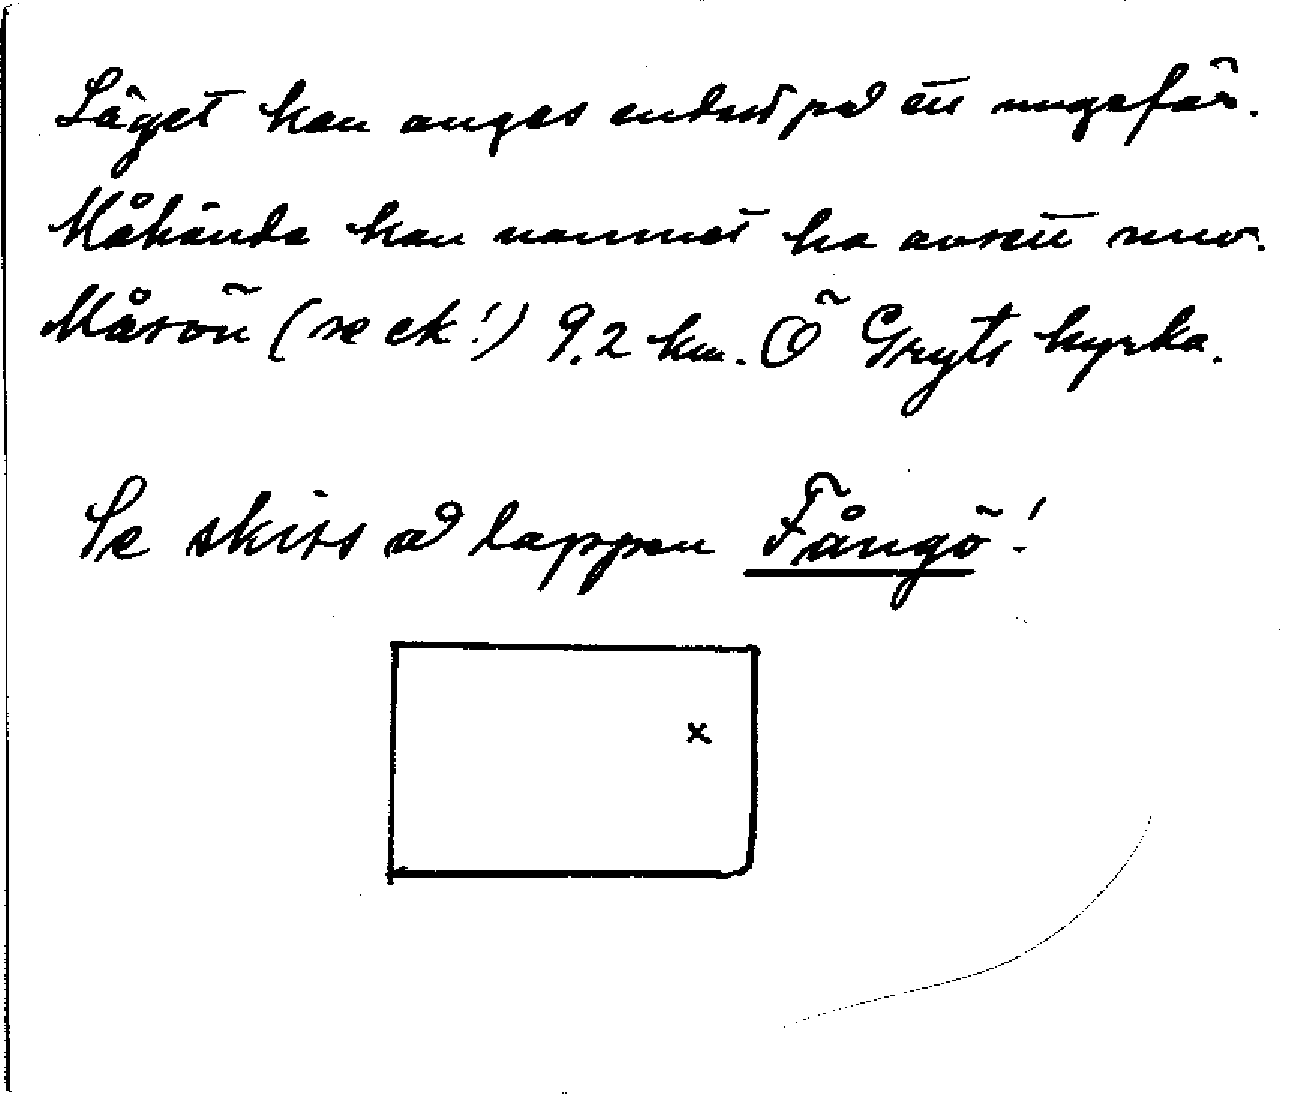 Läget kan anges endast på ett ungefär.
Måhända kan namnet ha avsett nuv.
Måsön (se ek!) 9.2 km. Ö Gryts kyrka.
Se skiss å lappen Fångö!
x